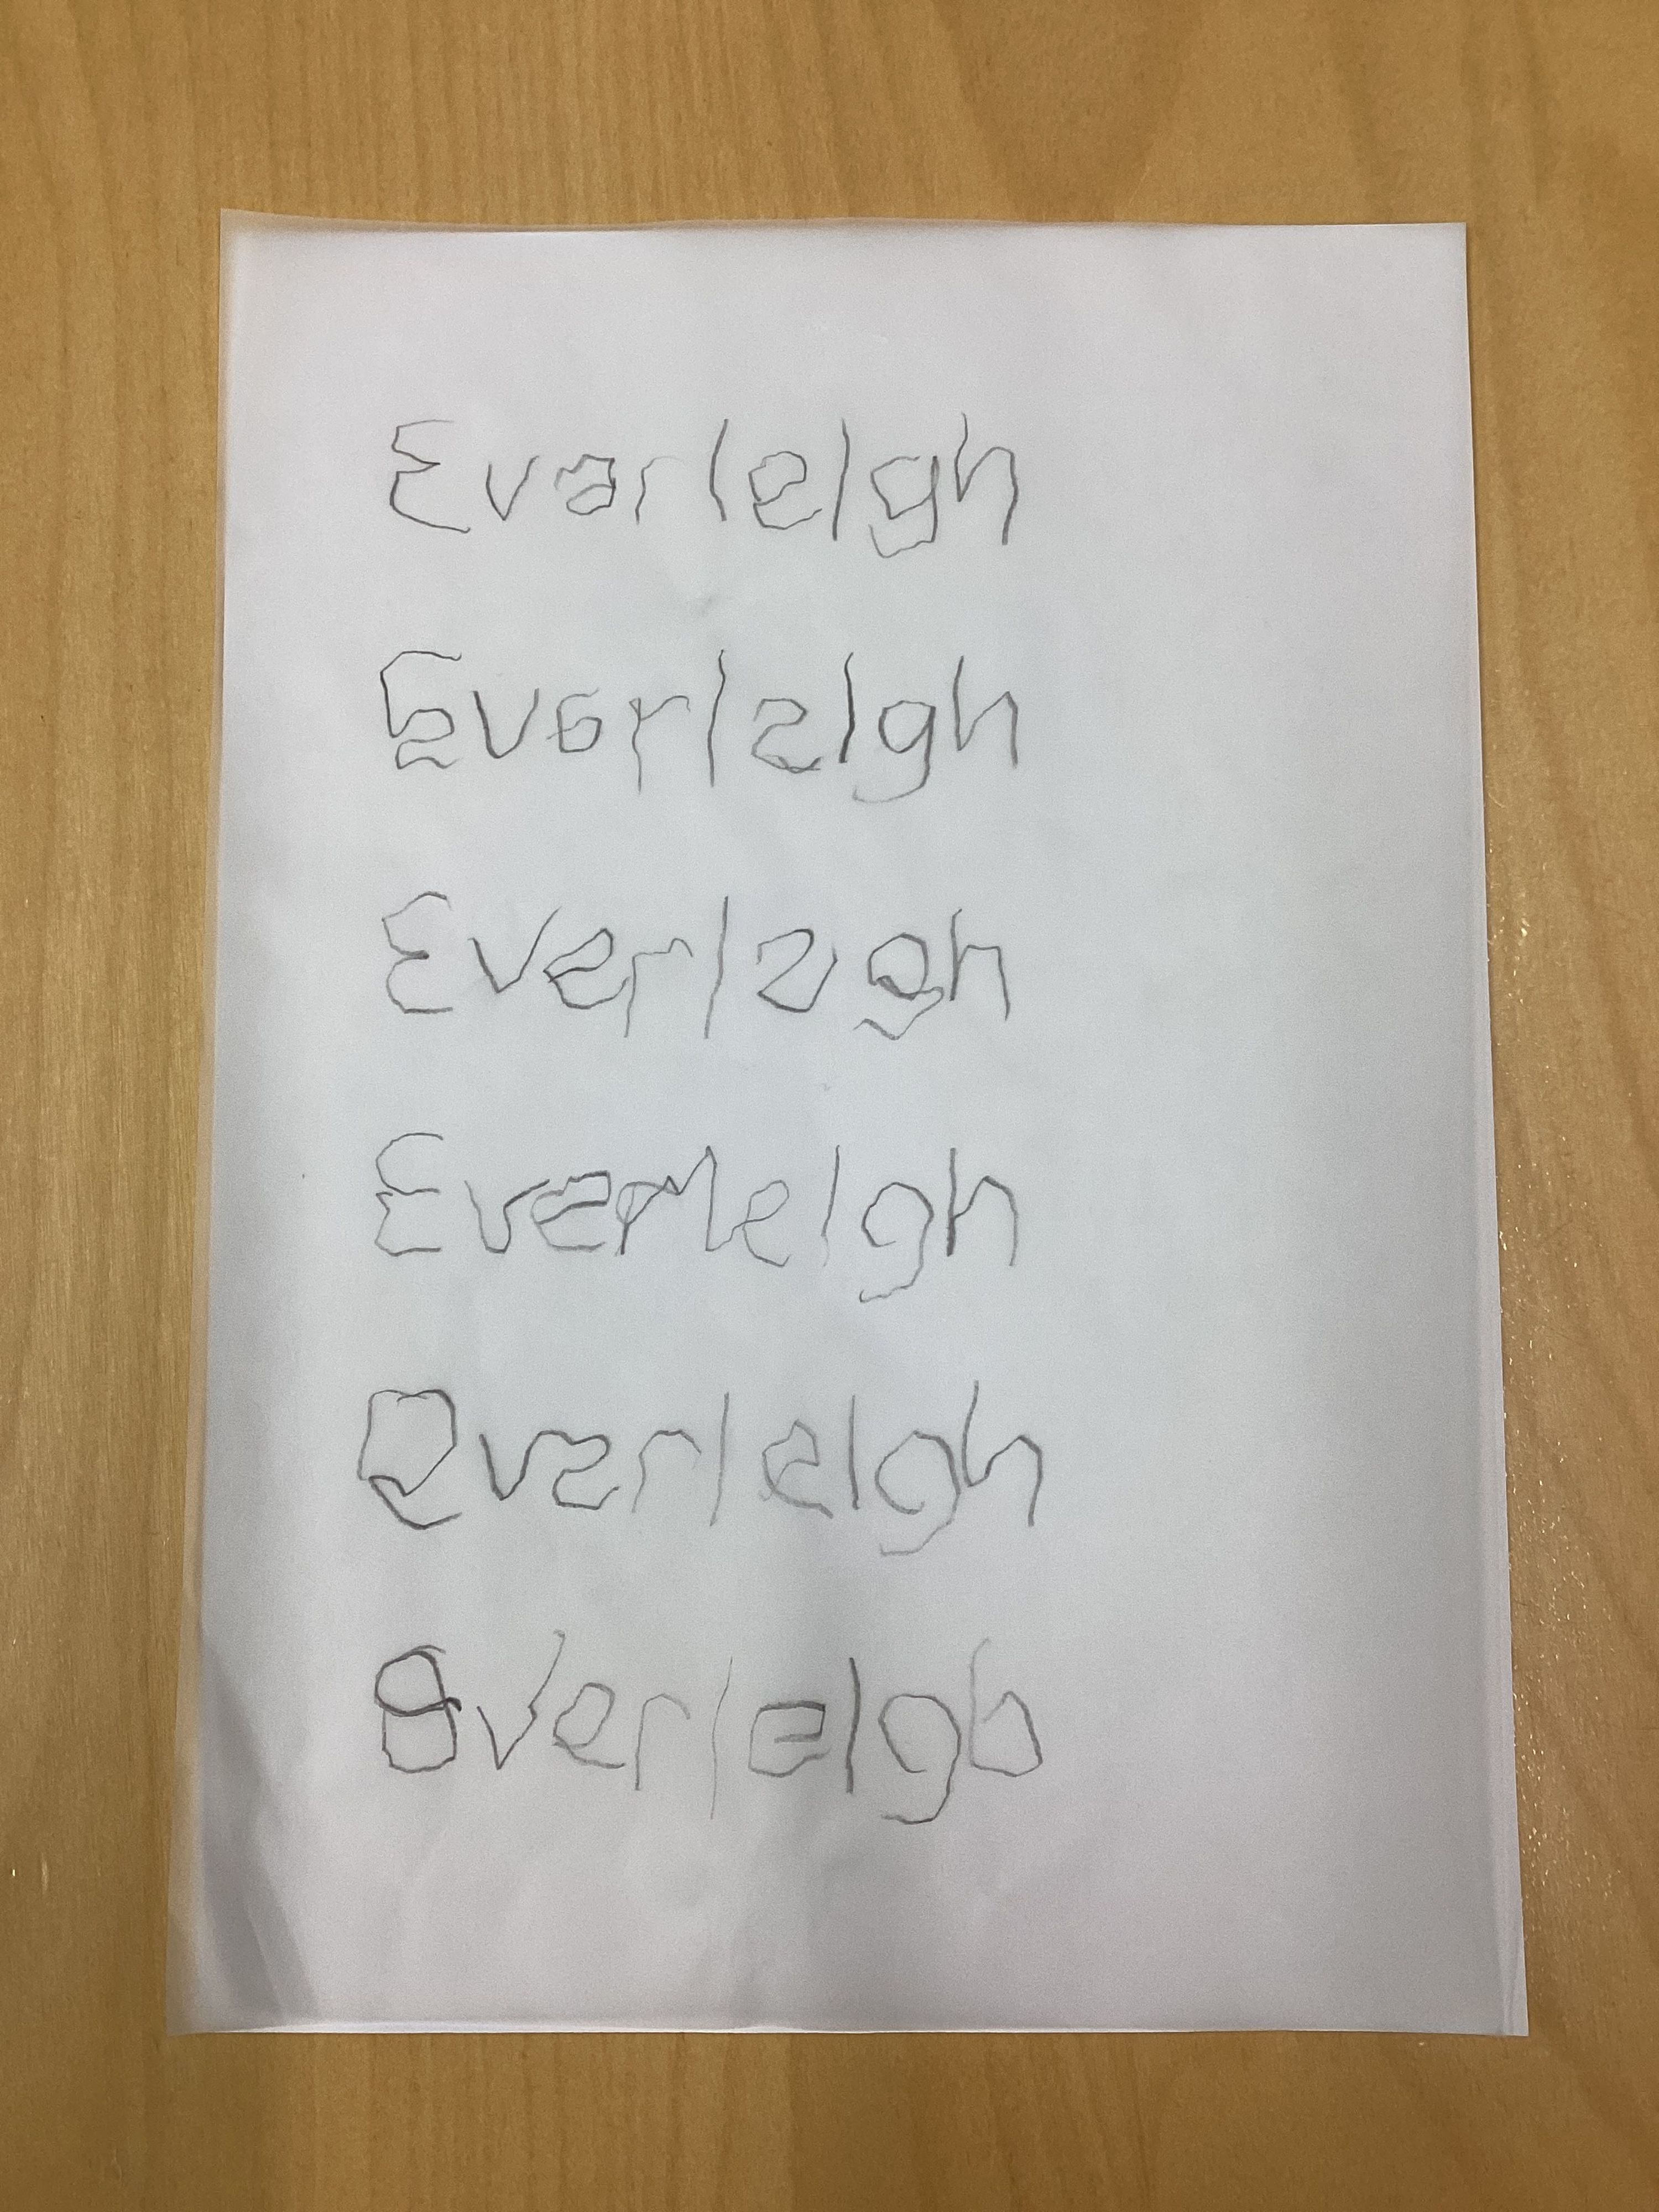 Everleigh
Everleigh
Everlegh
Everleigh
Everleigh
Everleigh